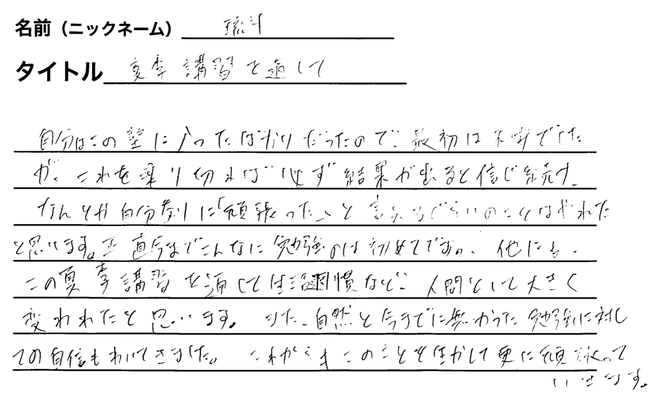 名前（ニックネーム） 琉斗
タイトル 夏季講習を通して
自分はこの塾に入ったばかりだったので、最初は不安でした
が、これを乗り切れば必ず結果が出ると信じ続け、
なんとか自分なりに「頑張った」と言えるぐらいのことはやれた
と思います。正直今までこんなに勉強したのは初めてですの、他にも、
この夏季講習を通しては習慣など、人間として大きく
変われたと思います。また、自然と今までに無かった勉強に対し
ての自信もわいてきました。これからもこのことを生かして更に頑張って
いきます。